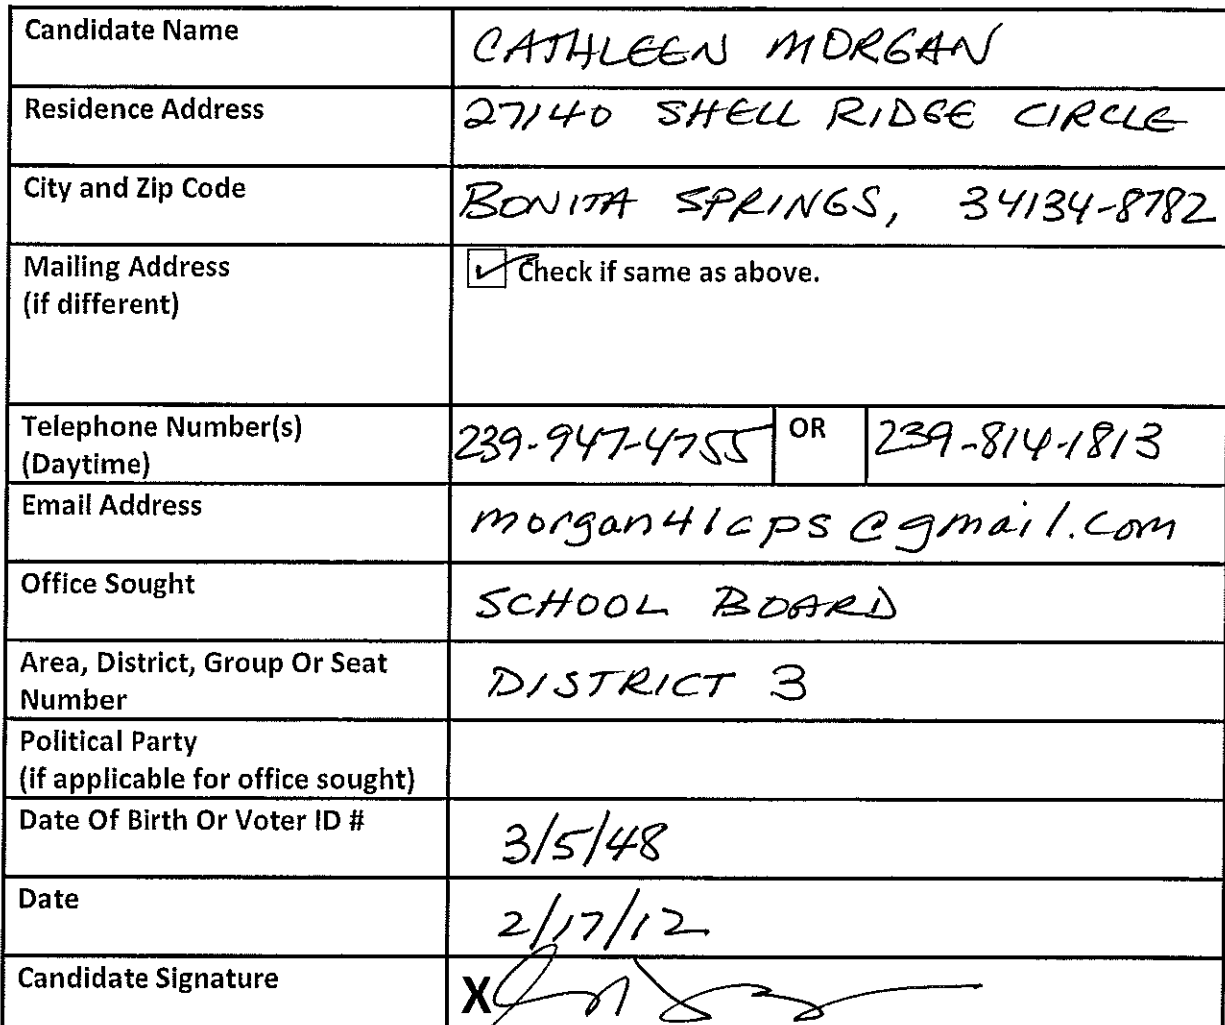 Candidate Name CATHLEEN MORGAN
Residence Address 27140 SHELL RIDGE CIRCLE
City and Zip Code BONITA SPRINGS, 34134-8782
Mailing Address Check if same as above.
(if different)
Telephone Number(s) 239-947-4755 OR 239-814-1813
(Daytime)
Email Address morgan41cps@gmail.com
Office Sought SCHOOL BOARD
Area, District, Group Or Seat DISTRICT 3
Number
Political Party
(if applicable for office sought)
Date Of Birth Or Voter ID # 3/5/48
Date 2/17/12
Candidate Signature X